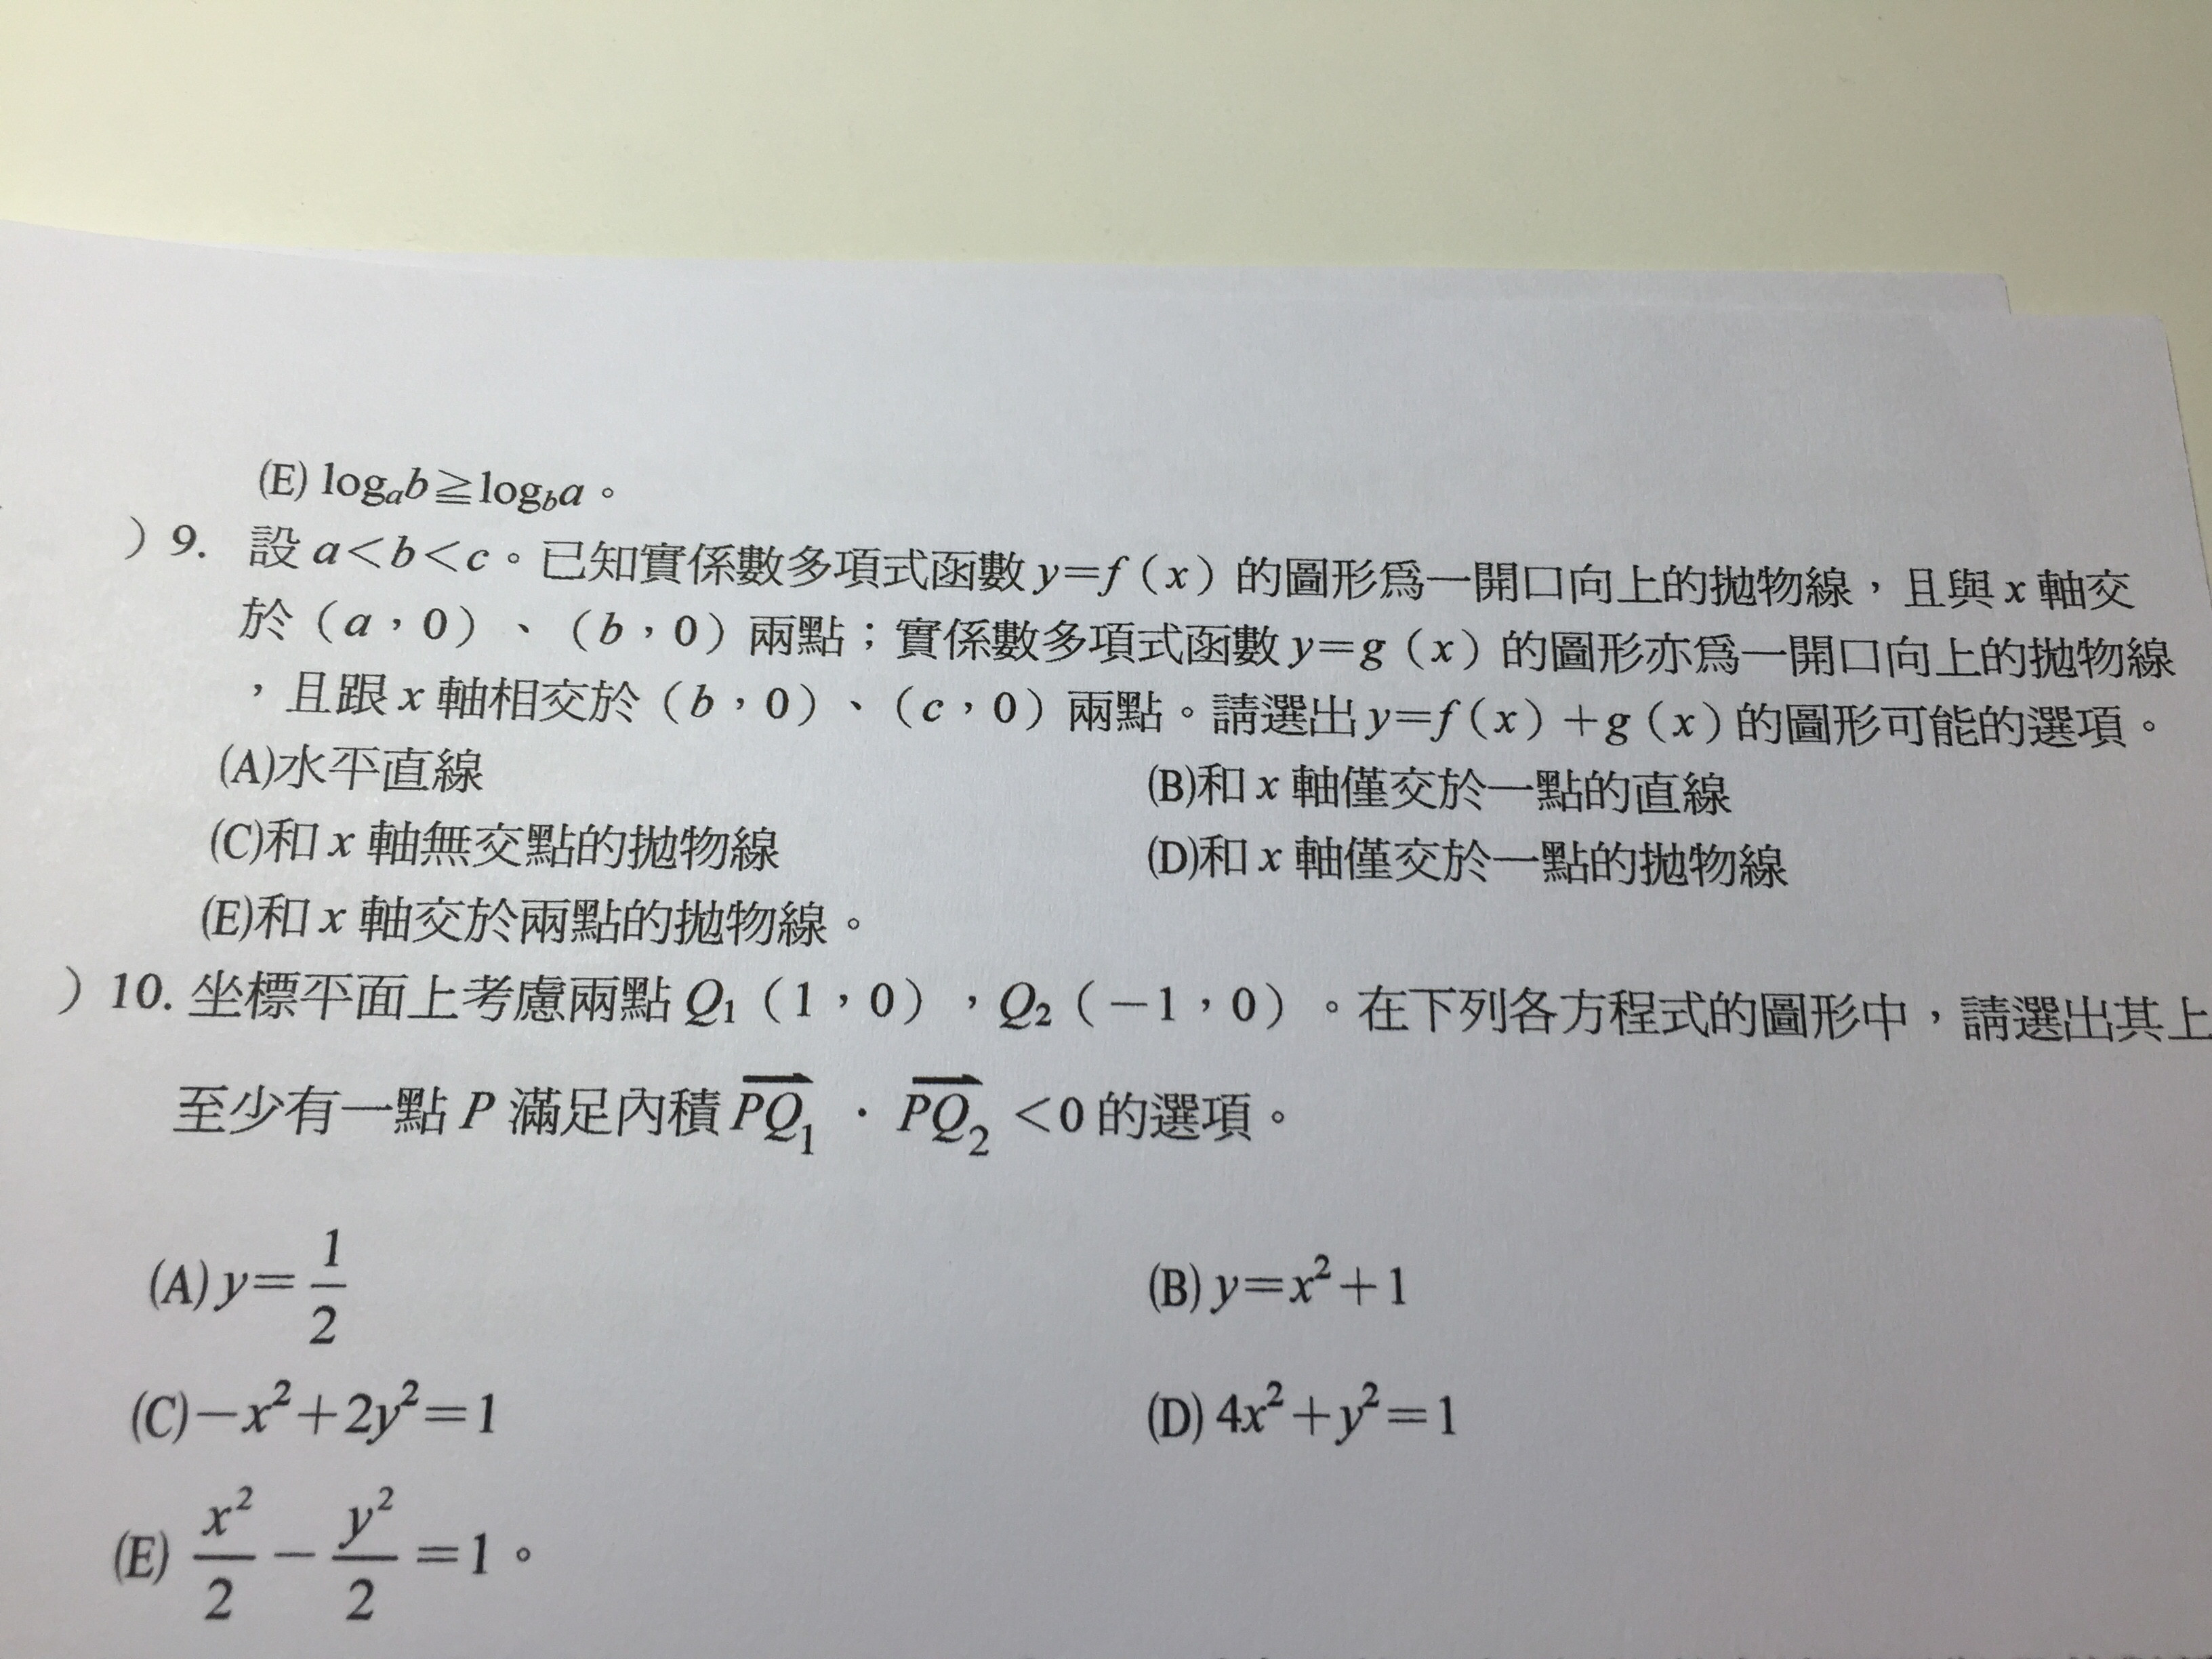 (E) logₐb≧log_b a。
）9. 設 a＜b＜c。已知實係數多項式函數 y＝f（x）的圖形為一開口向上的拋物線，且與 x 軸交
於（a，0）、（b，0）兩點；實係數多項式函數 y＝g（x）的圖形亦為一開口向上的拋物線
，且跟 x 軸相交於（b，0）、（c，0）兩點。請選出 y＝f（x）＋g（x）的圖形可能的選項。
(A)水平直線 (B)和 x 軸僅交於一點的直線
(C)和 x 軸無交點的拋物線 (D)和 x 軸僅交於一點的拋物線
(E)和 x 軸交於兩點的拋物線。
）10. 坐標平面上考慮兩點 Q₁（1，0），Q₂（－1，0）。在下列各方程式的圖形中，請選出其上
至少有一點 P 滿足內積 PQ₁ · PQ₂ ＜0 的選項。
(A) y＝1/2 (B) y＝x²＋1
(C)－x²＋2y²＝1 (D) 4x²＋y²＝1
(E) x²/2 － y²/2 ＝1。